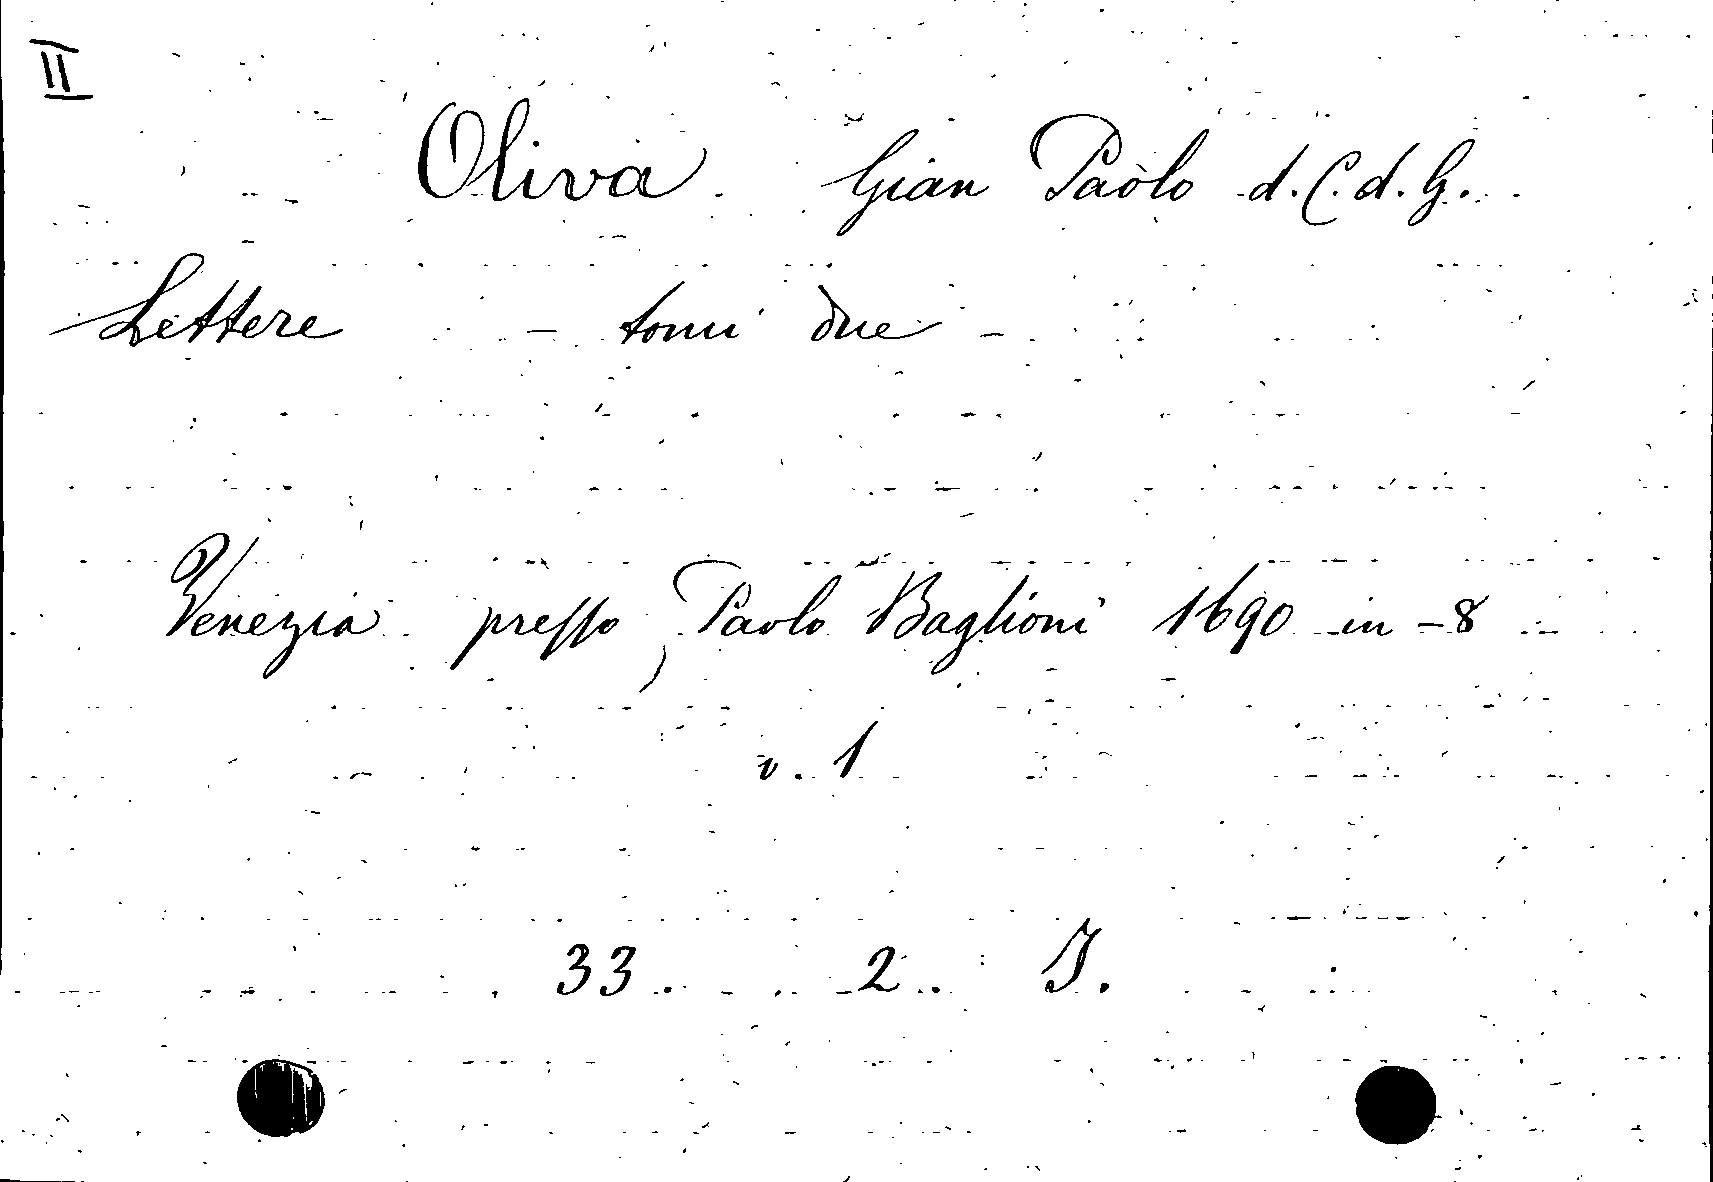 II
Oliva Gian Paolo d. C. d. G.
Lettere - tomi due -
Venezia presso Paolo Baglioni 1690 in-8
v. 1
33. 2. I.